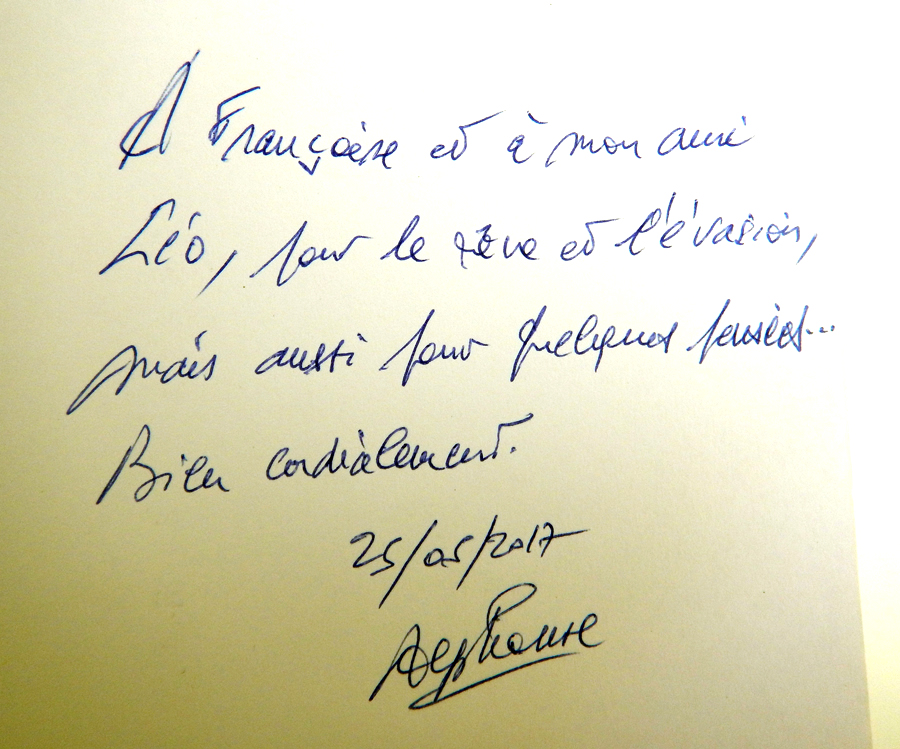 A Françoise et à mon ami
Léo, pour le rêve et l'évasion,
mais aussi pour quelques pensées...
Bien cordialement.
25/05/2017
Alphonse